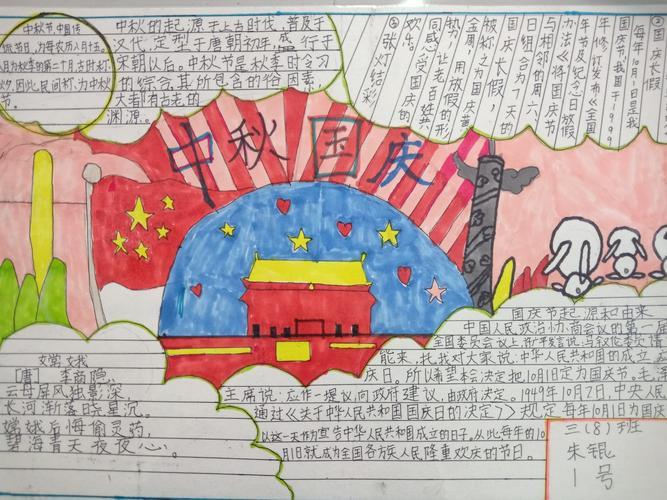 中秋节,中国传
统节日,为每农历八月十五,
八月为秋季的第二个月,古时称
仲秋,因此,民间称,为中秋
节。
中秋的起源于上古时代,普及于
汉代,定型于唐朝初年,盛行于
宋朝以后。中秋节是秋季时令习
的综合,其所包含的俗因素,
大都有古老的
渊源。
国庆长假
每年10月1日是我
国庆节,我国于1999
年修订发布《全国
年节及纪念日放假
办法》将国庆节
与相邻的周六、
日组合为7天的
国庆长假,
被称之为国庆黄
金周,用放假的形
势,让老百姓共
同感受国庆的
欢愉。
张灯结彩
中秋国庆
嫦娥
【唐】李商隐
云母屏风烛影深,
长河渐落晓星沉。
嫦娥应悔偷灵药,
碧海青天夜夜心。
国庆节起源和由来
中国人民政治协商会议的第一届
全国委员会议上,许广平发言说,马叙伦委员请
能来,托我对大家说:中华人民共和国的成立
庆日。所以希望本会决定把10月1日定为国庆节,毛泽
主席说:应作一提议,向政府建议,由政府决定。1949年10月2日,中央人
通过《关于中华人民共和国国庆日的决定》规定每年10月1日为国庆
以这一天作为宣告中华人民共和国成立的日子。从此,每年的10
月1日就成为全国各族人民隆重欢庆的节日。
三(8)班
朱锟
1号